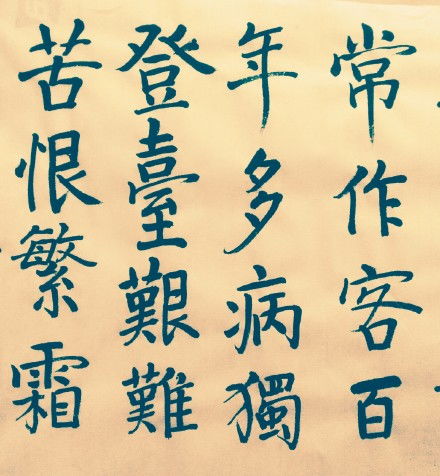 常作客百
年多病獨
登臺艱難
苦恨繁霜